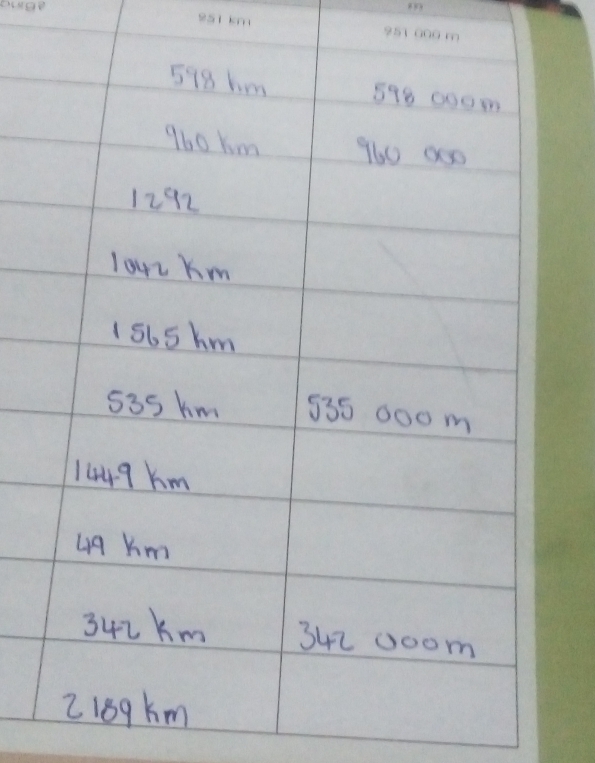 m
951 km 951 000 m
598 km 598 000m
960 km 960 000
1292
1042 km
1565 km
535 km 535 000 m
1449 km
49 km
342 km 342 000m
2189 km